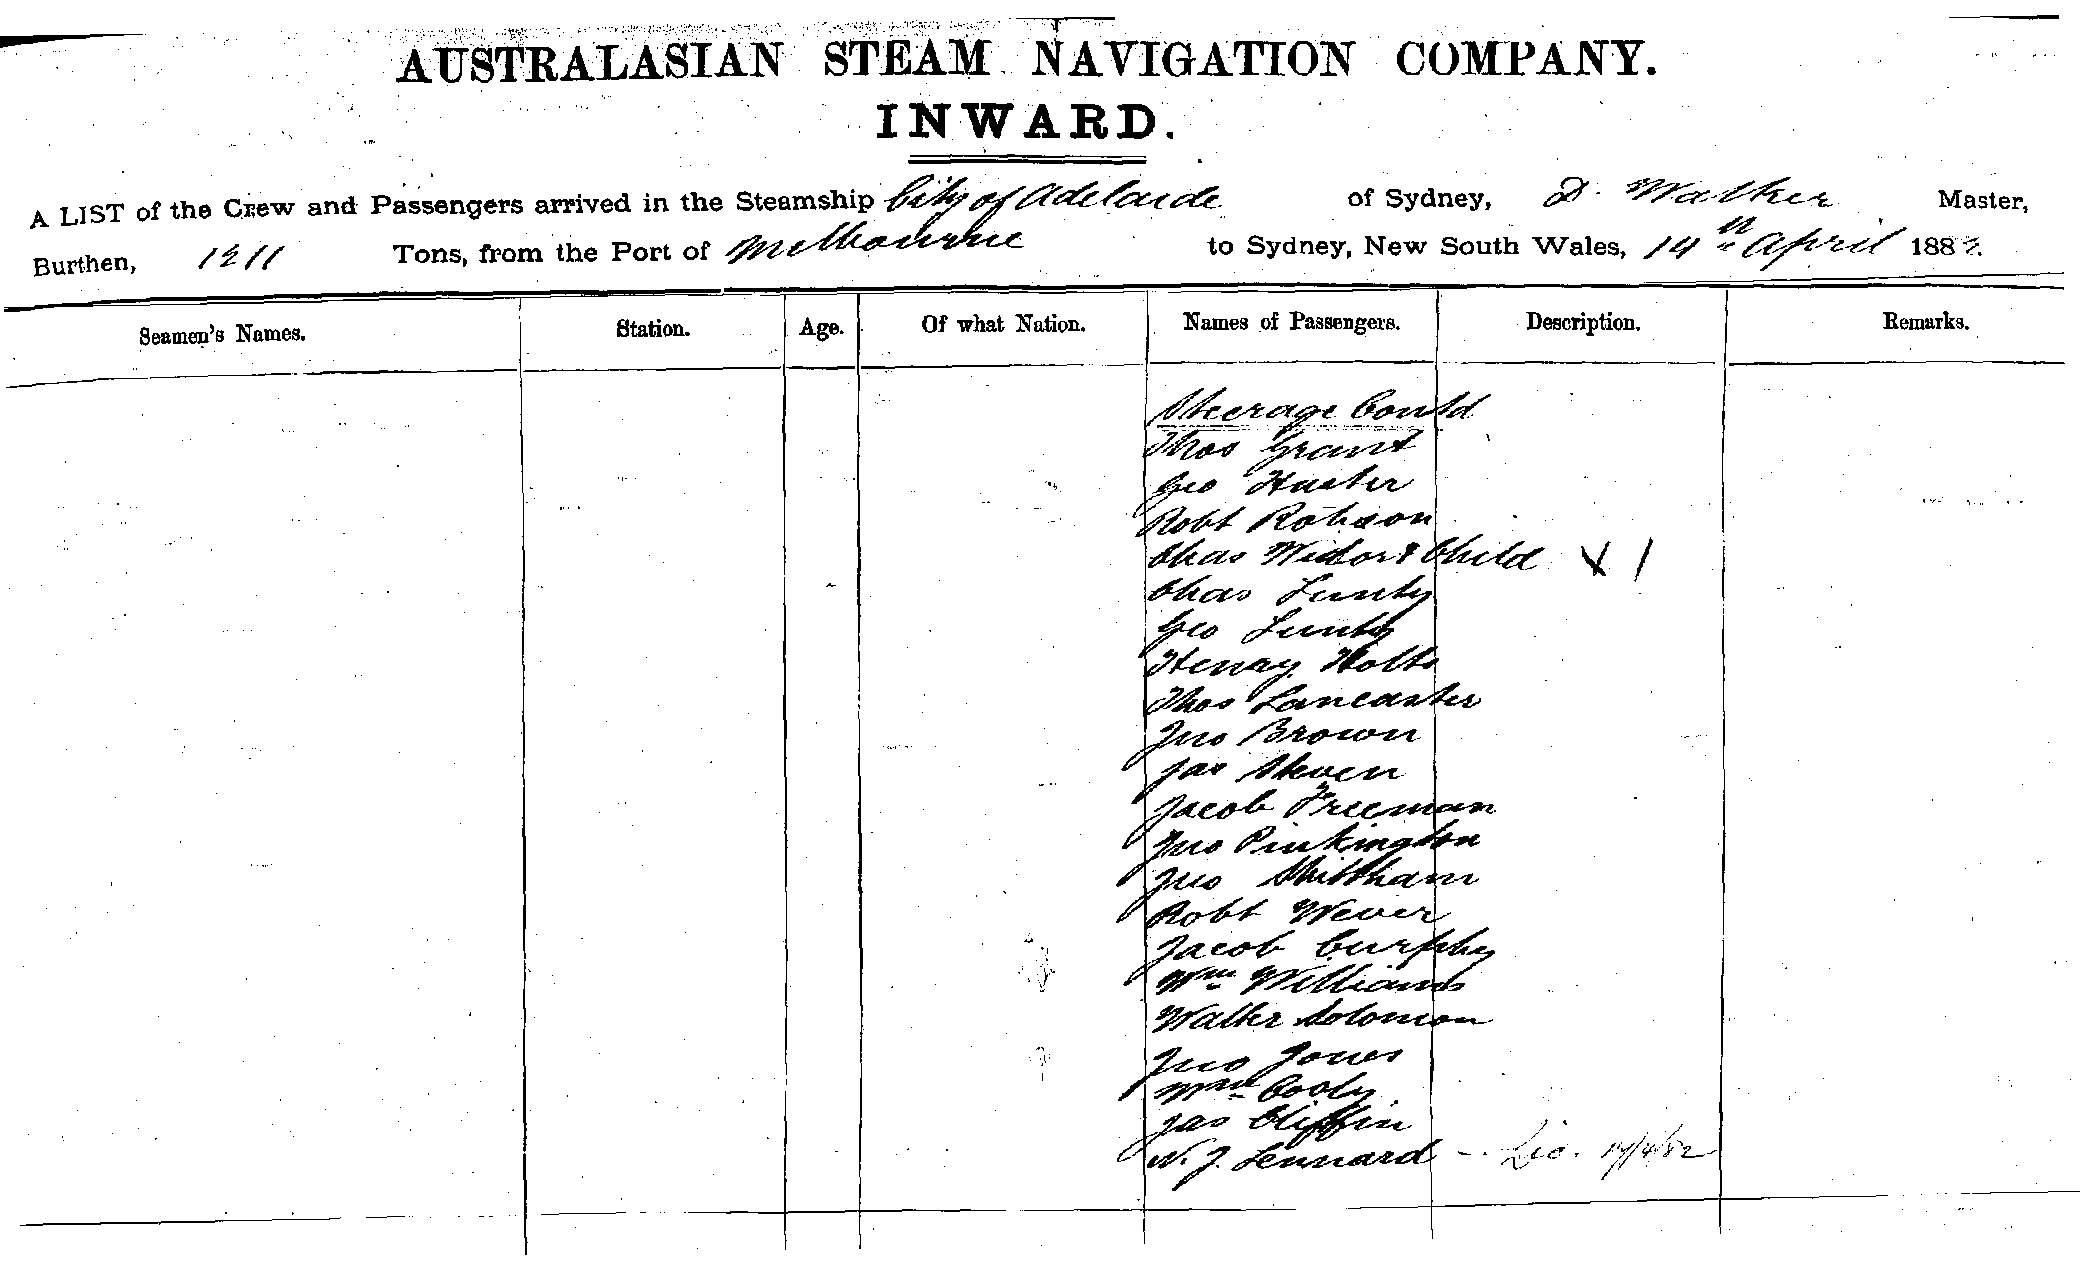 AUSTRALASIAN STEAM NAVIGATION COMPANY.
INWARD.
A LIST of the Crew and Passengers arrived in the Steamship City of Adelaide of Sydney, D. Walker Master,
Burthen, 1211 Tons, from the Port of Melbourne to Sydney, New South Wales, 14th April 1882.
Seamen's Names. Station. Age. Of what Nation. Names of Passengers. Description. Remarks.
Steerage Contd
Thos Grant
Geo Hunter
Robt Robson
Chas & Child X 1
Chas Lunty
Geo Lunty
Henry Holts
Thos Lancaster
Jno Brown
Jas Steven
Jacob Freeman
Jno Pinkington
Jno
Robt Wever
Jacob Curphey
Wm Williams
Walter Solomon
Jno Jones
Wm Cooly
Jas Cliffin
N. J. Lennard - Lic.